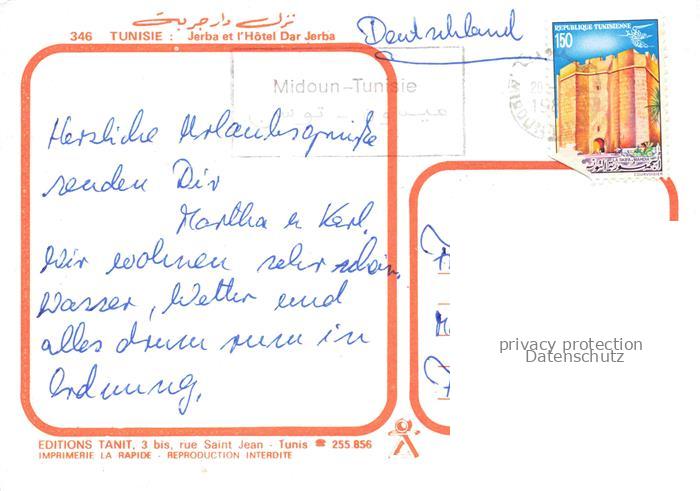 نزل دار جربة
346 TUNISIE : Jerba et l'Hôtel Dar Jerba
Deutschland
REPUBLIQUE TUNISIENNE
150
Midoun-Tunisie
ميدون - تونس
LA SKIFA - MAHDIA
الجمهورية التونسية
COURVOISIER
Herzliche Urlaubsgrüße
senden Dir
Martha u Karl.
Wir wohnen sehr schön,
Wasser, Wetter und
alles drum rum in
Ordnung.
privacy protection
Datenschutz
EDITIONS TANIT, 3 bis, rue Saint Jean - Tunis ☎ 255.856
IMPRIMERIE LA RAPIDE - REPRODUCTION INTERDITE